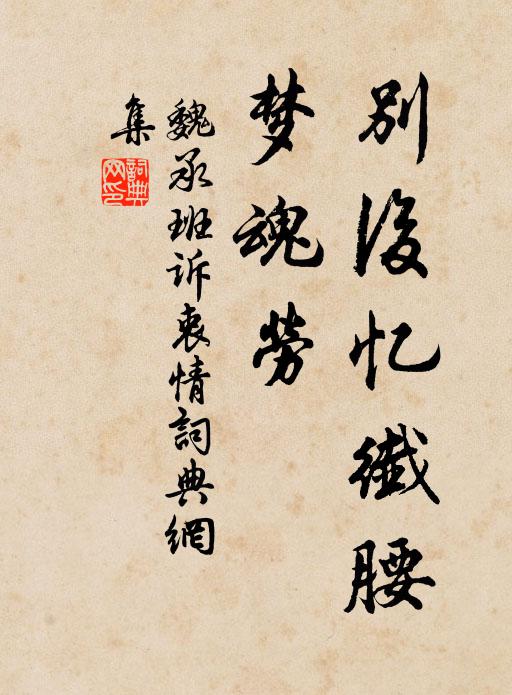 别後忆纖腰
梦魂勞
魏承班诉衷情詞典網
集
詞典网印